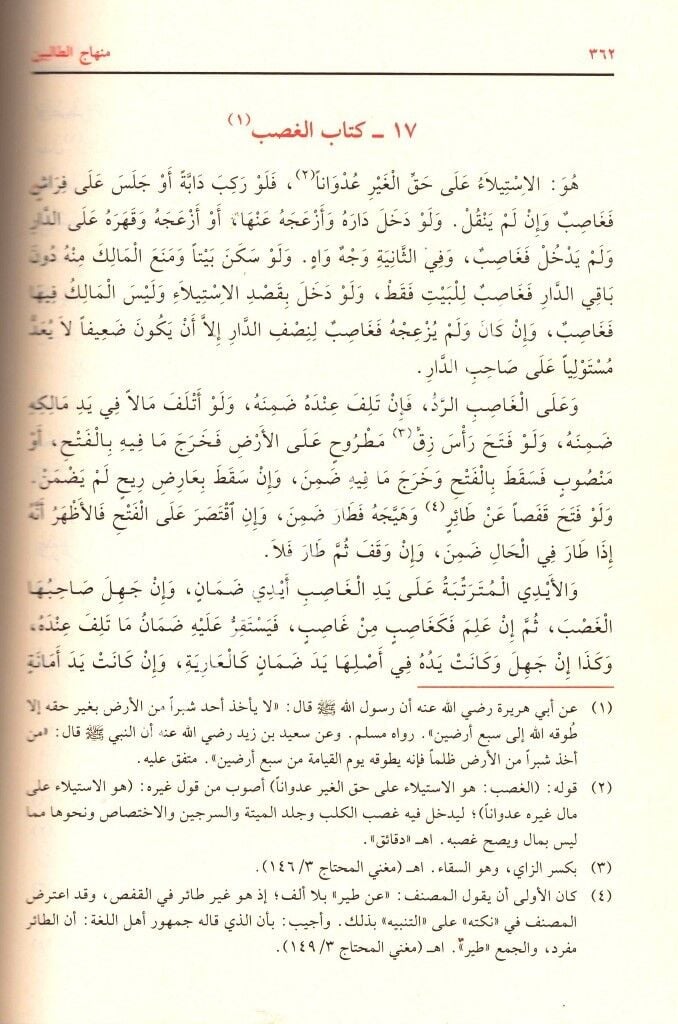 ٣٦٢ منهاج الطالبين
١٧ ـ كتاب الغصب(١)
هُوَ: الاِسْتِيلَاءُ عَلَى حَقِّ الْغَيْرِ عُدْوَاناً(٢)، فَلَوْ رَكِبَ دَابَّةً أَوْ جَلَسَ عَلَى فِرَاشٍ
فَغَاصِبٌ وَإِنْ لَمْ يَنْقُلْ. وَلَوْ دَخَلَ دَارَهُ وَأَزْعَجَهُ عَنْهَا، أَوْ أَزْعَجَهُ وَقَهَرَهُ عَلَى الدَّارِ
وَلَمْ يَدْخُلْ فَغَاصِبٌ، وَفِي الثَّانِيَةِ وَجْهٌ وَاهٍ. وَلَوْ سَكَنَ بَيْتاً وَمَنَعَ الْمَالِكَ مِنْهُ دُونَ
بَاقِي الدَّارِ فَغَاصِبٌ لِلْبَيْتِ فَقَطْ، وَلَوْ دَخَلَ بِقَصْدِ الاِسْتِيلَاءِ وَلَيْسَ الْمَالِكُ فِيهَا
فَغَاصِبٌ، وَإِنْ كَانَ وَلَمْ يُزْعِجْهُ فَغَاصِبٌ لِنِصْفِ الدَّارِ إِلَّا أَنْ يَكُونَ ضَعِيفاً لاَ يُعَدُّ
مُسْتَوْلِياً عَلَى صَاحِبِ الدَّارِ.
وَعَلَى الْغَاصِبِ الرَّدُّ، فَإِنْ تَلِفَ عِنْدَهُ ضَمِنَهُ، وَلَوْ أَتْلَفَ مَالاً فِي يَدِ مَالِكِهِ
ضَمِنَهُ، وَلَوْ فَتَحَ رَأْسَ زِقٍّ(٣) مَطْرُوحٍ عَلَى الأَرْضِ فَخَرَجَ مَا فِيهِ بِالْفَتْحِ، أَوْ
مَنْصُوبٍ فَسَقَطَ بِالْفَتْحِ وَخَرَجَ مَا فِيهِ ضَمِنَ، وَإِنْ سَقَطَ بِعَارِضِ رِيحٍ لَمْ يَضْمَنْ.
وَلَوْ فَتَحَ قَفَصاً عَنْ طَائِرٍ(٤) وَهَيَّجَهُ فَطَارَ ضَمِنَ، وَإِنِ اقْتَصَرَ عَلَى الْفَتْحِ فَالأَظْهَرُ أَنَّهُ
إِذَا طَارَ فِي الْحَالِ ضَمِنَ، وَإِنْ وَقَفَ ثُمَّ طَارَ فَلاَ.
وَالأَيْدِي الْمُتَرَتِّبَةُ عَلَى يَدِ الْغَاصِبِ أَيْدِي ضَمَانٍ، وَإِنْ جَهِلَ صَاحِبُهَا
الْغَصْبَ، ثُمَّ إِنْ عَلِمَ فَكَغَاصِبٍ مِنْ غَاصِبٍ، فَيَسْتَقِرُّ عَلَيْهِ ضَمَانُ مَا تَلِفَ عِنْدَهُ،
وَكَذَا إِنْ جَهِلَ وَكَانَتْ يَدُهُ فِي أَصْلِهَا يَدَ ضَمَانٍ كَالْعَارِيَةِ، وَإِنْ كَانَتْ يَدَ أَمَانَةٍ
(١) عن أبي هريرة رضي الله عنه أن رسول الله ﷺ قال: «لا يأخذ أحد شبراً من الأرض بغير حقه إلا
طُوقه الله إلى سبع أرضين». رواه مسلم. وعن سعيد بن زيد رضي الله عنه أن النبي ﷺ قال: «من
أخذ شبراً من الأرض ظلماً فإنه يطوقه يوم القيامة من سبع أرضين». متفق عليه.
(٢) قوله: (الغصب: هو الاستيلاء على حق الغير عدواناً) أصوب من قول غيره: (هو الاستيلاء على
مال غيره عدواناً)؛ ليدخل فيه غصب الكلب وجلد الميتة والسرجين والاختصاص ونحوها مما
ليس بمال ويصح غصبه. اهـ «دقائق».
(٣) بكسر الزاي، وهو السقاء. اهـ (مغني المحتاج ١٤٦/٣).
(٤) كان الأولى أن يقول المصنف: «عن طير» بلا ألف؛ إذ هو غير طائر في القفص، وقد اعترض
المصنف في «نكته» على «التنبيه» بذلك. وأجيب: بأن الذي قاله جمهور أهل اللغة: أن الطائر
مفرد، والجمع «طير». اهـ (مغني المحتاج ١٤٩/٣).